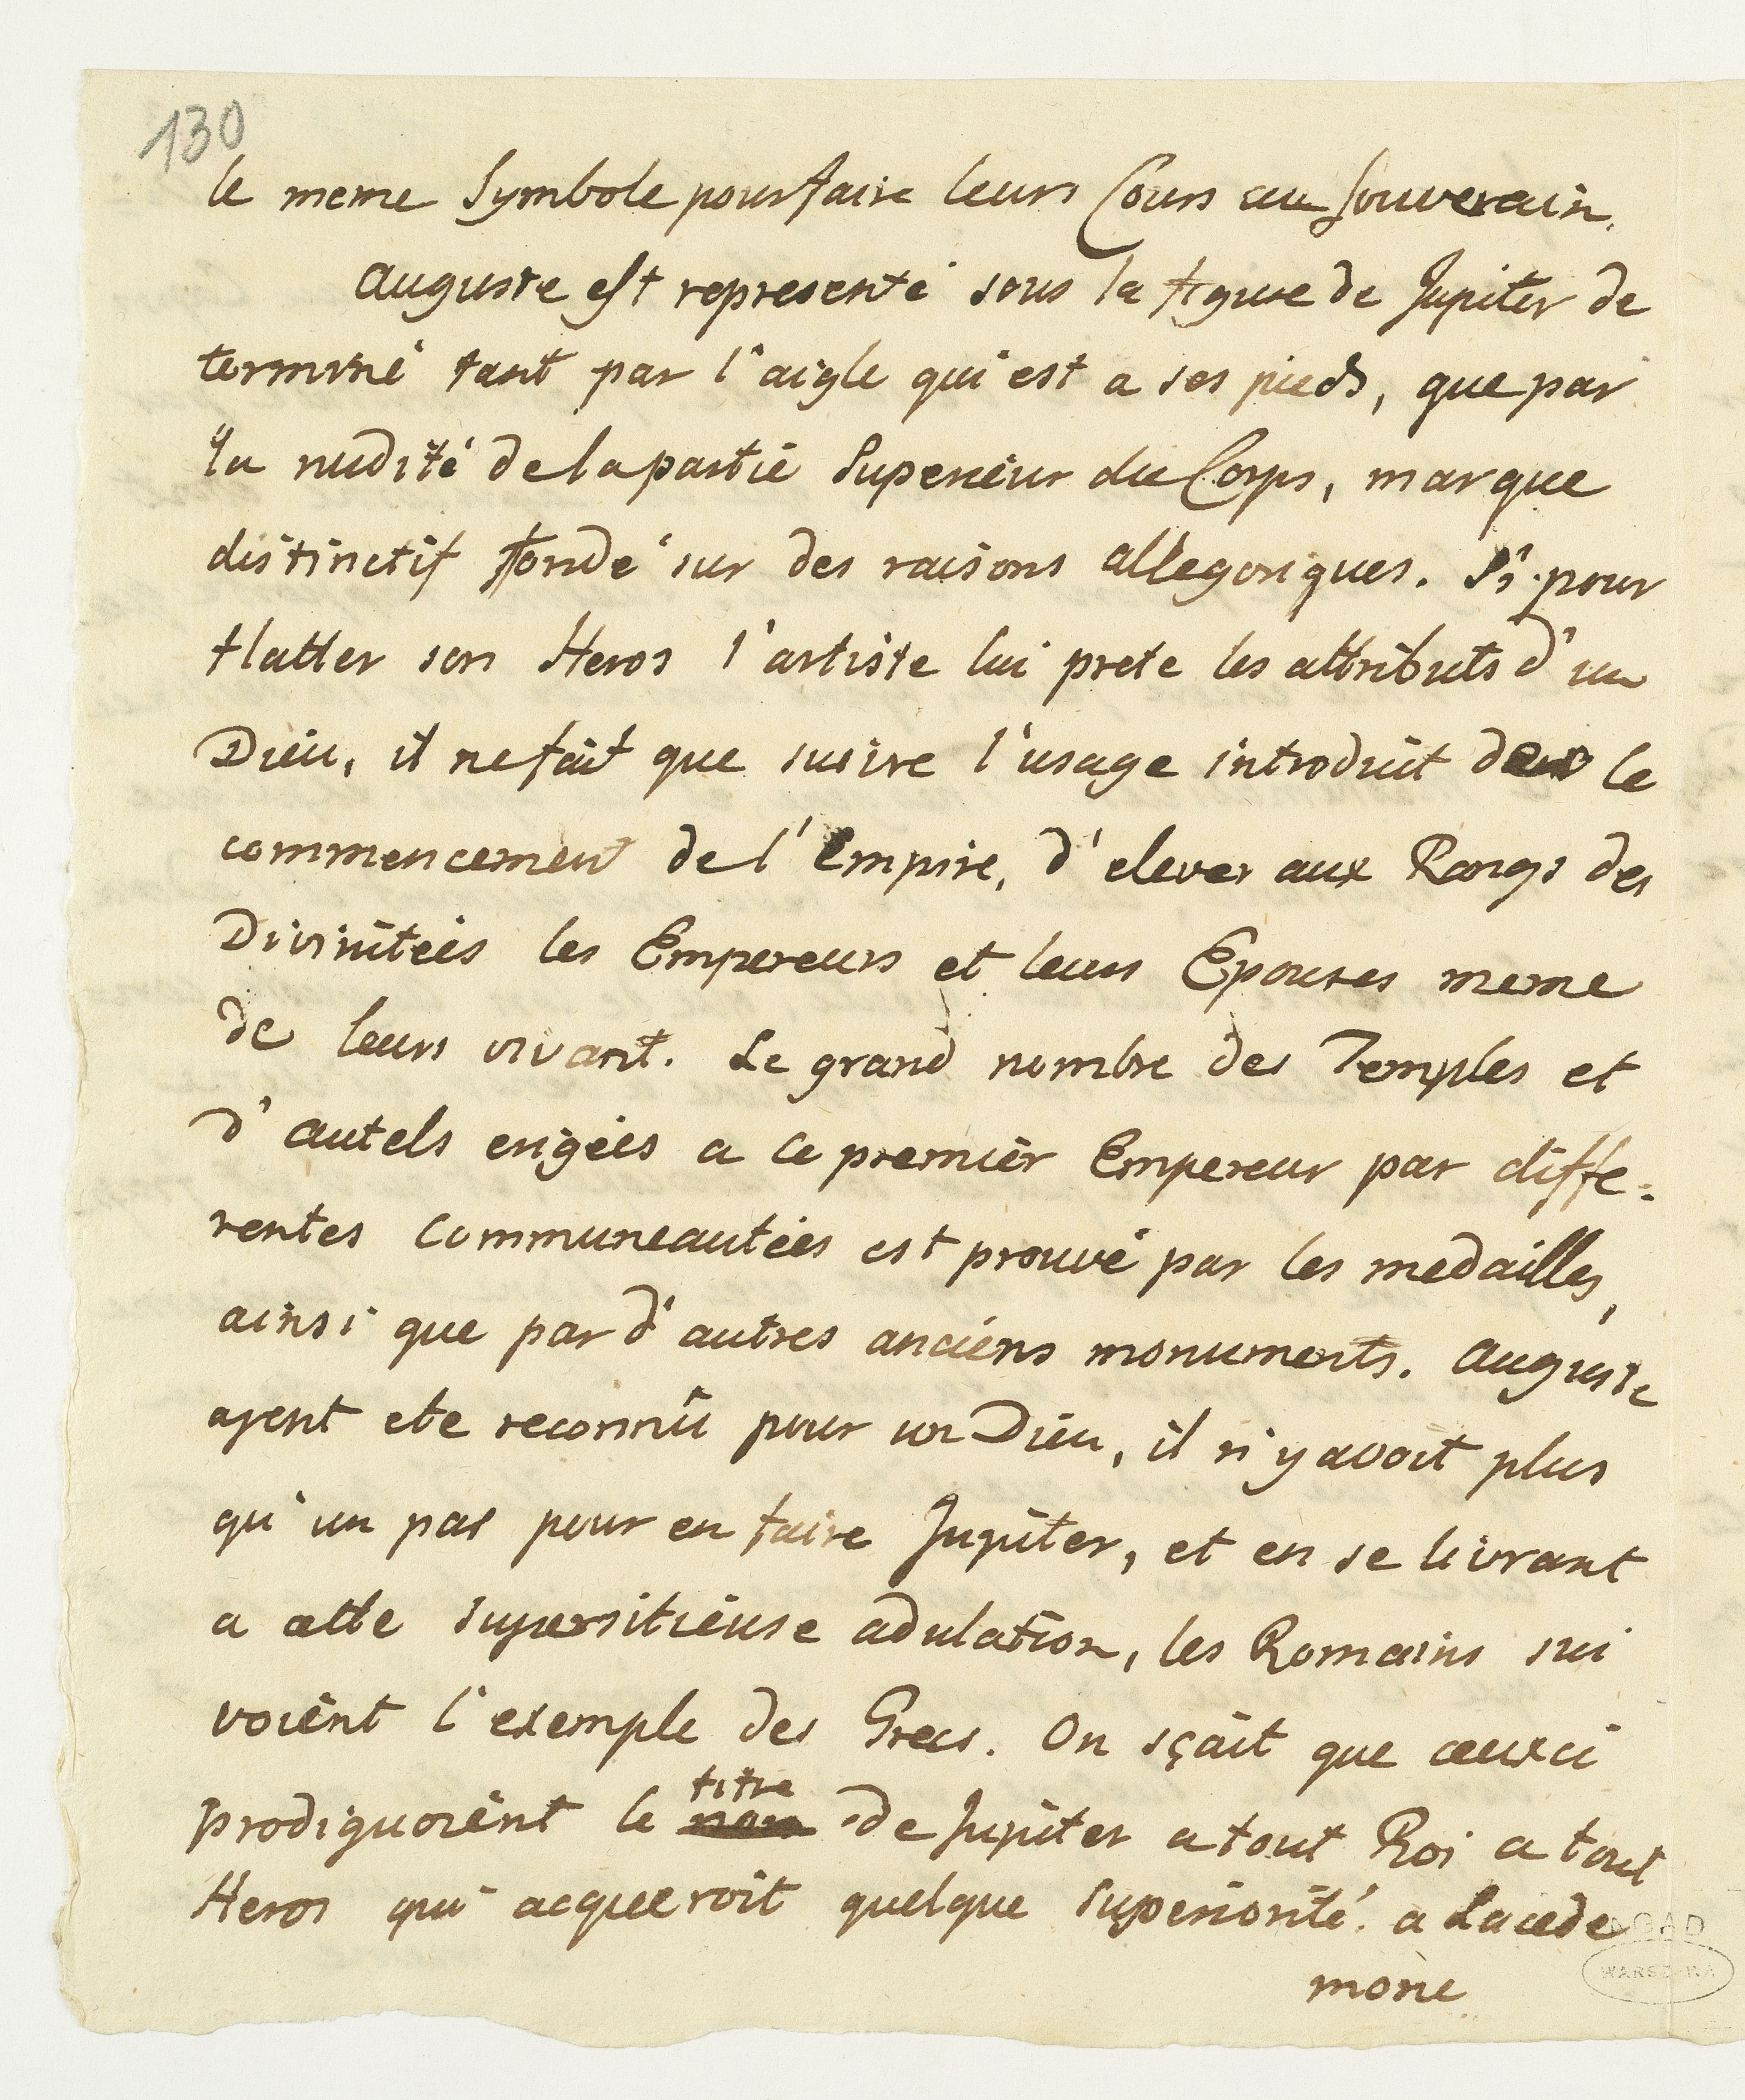 130
le meme Symbole pour faire leurs Cours au souverain.
Auguste est representé sous la figure de Jupiter de
terminé tant par l'aigle qui est a ses pieds, que par
la nudité de la partie Superieur du Corps, marque
distinctif fondé sur des raisons allegoriques. Si pour
flatter son Heros l'artiste lui prete les attributs d'un
Dieu, il ne fait que suivre l'usage introduit des le
commencement de l'Empire, d'elever aux Rangs des
Divinitées les Empereurs et leurs Epouses meme
de leurs vivant. Le grand nombre des Temples et
d'autels erigées a ce premier Empereur par diffe=
rentes Communeautées est prouvé par les medailles,
ainsi que par d'autres anciens monuments. Auguste
ayent ete reconnû pour un Dieu, il n'y avoit plus
qu'un pas pour en faire Jupiter, et en se livrant
a cette supersitieuse adulation, les Romains sui
voient l'exemple des Grecs. On sçait que ceux ci
titre
prodiguoient le nom de Jupiter a tout Roi a tout
Heros qui acqueeroit quelque superiorité. a Lacede
mone
AGAD
WARSZAWA